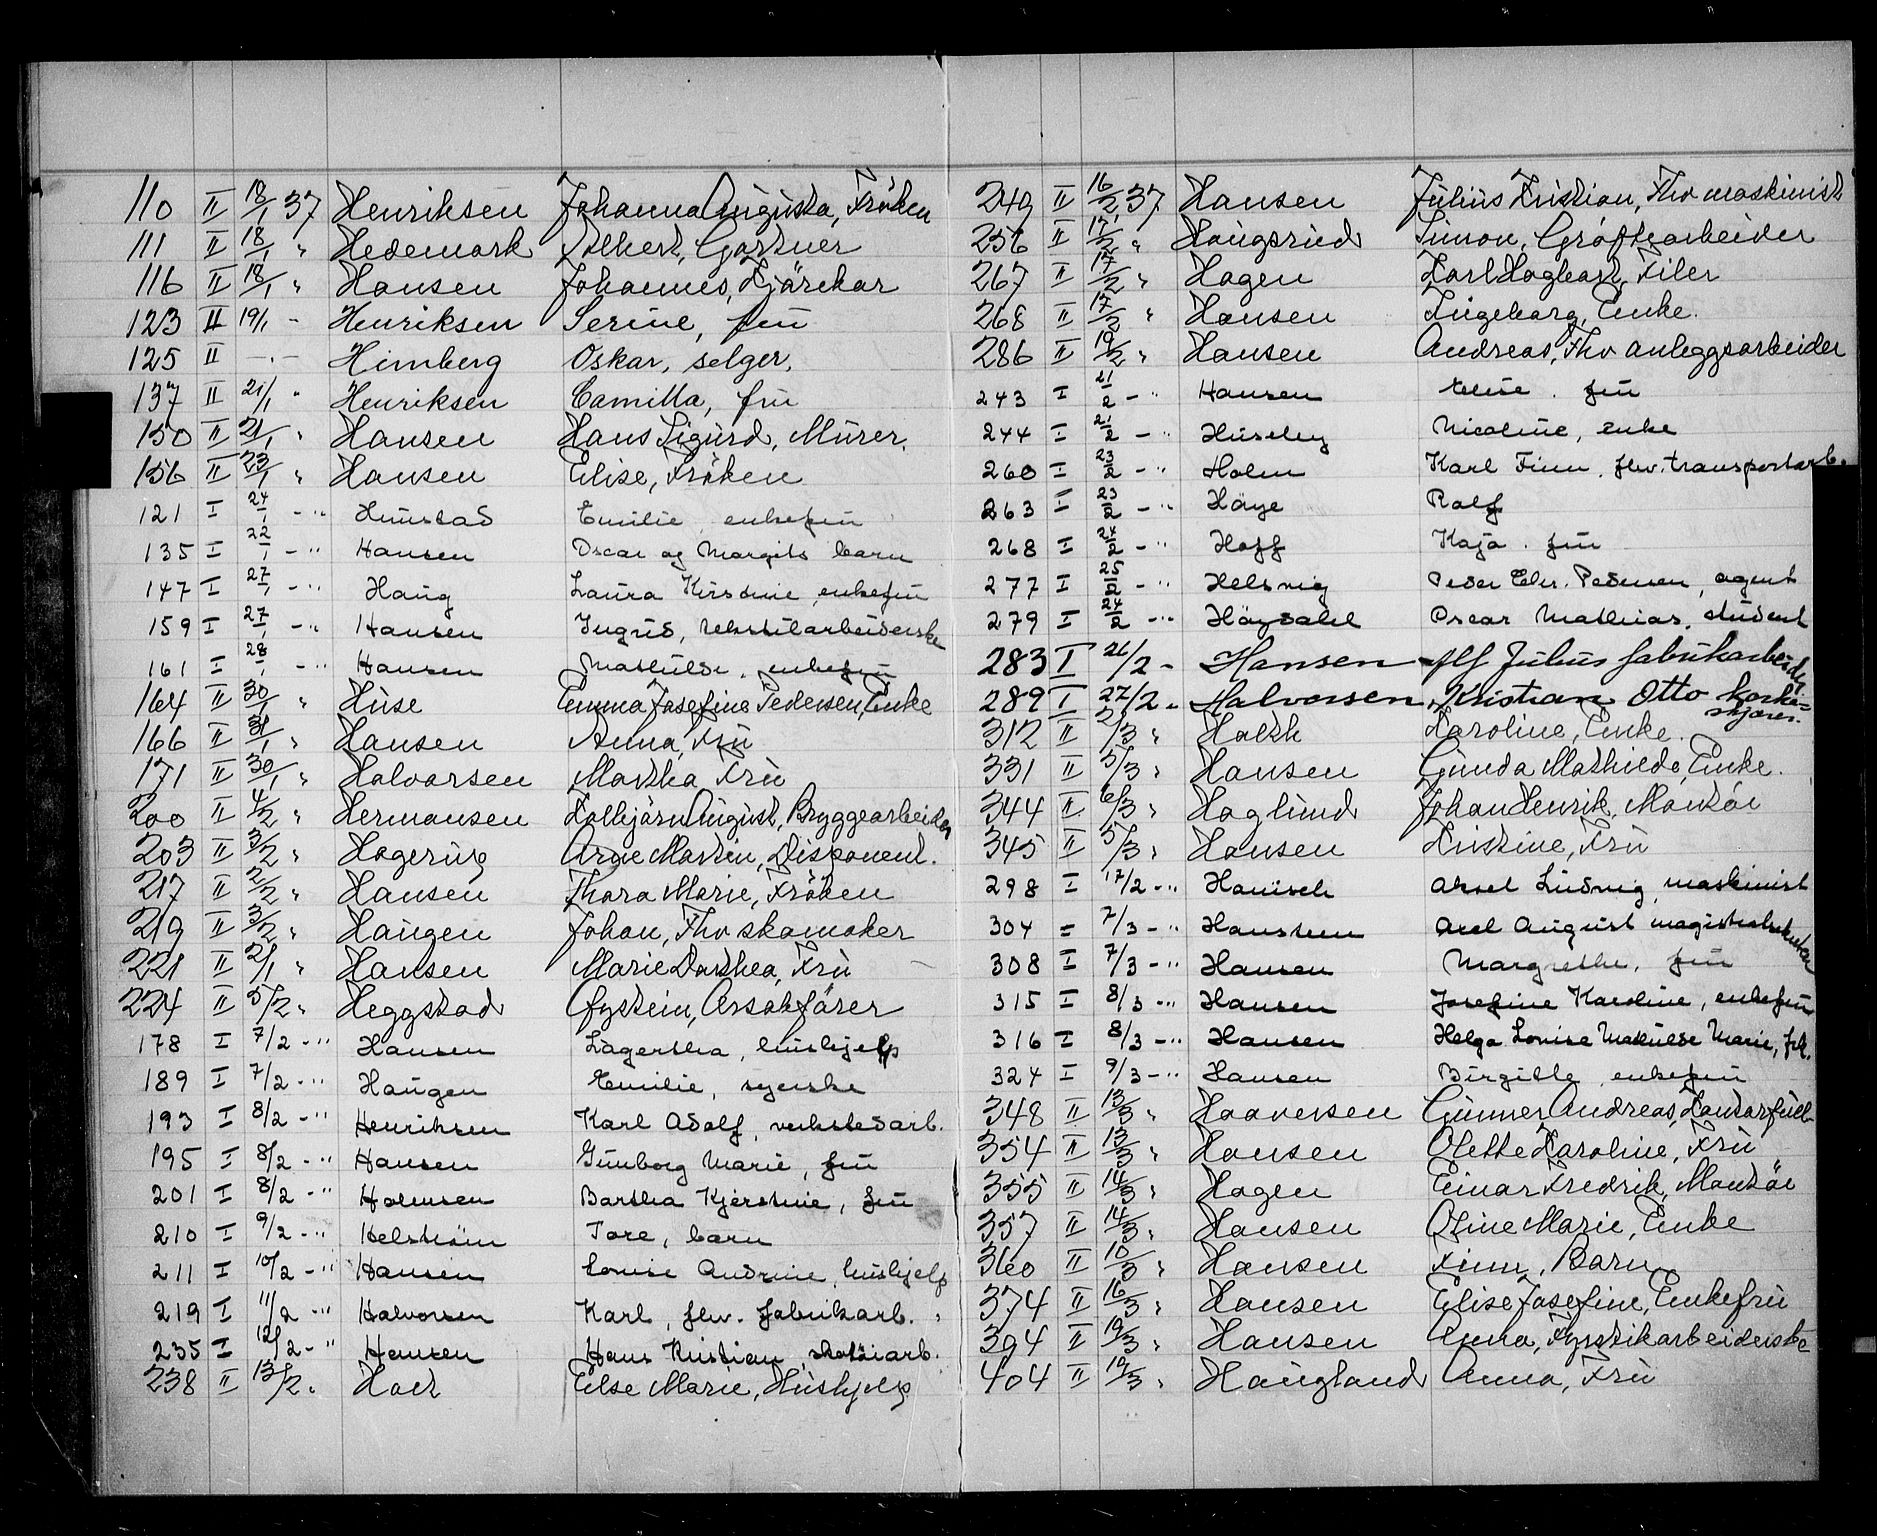 110 II 18/1 37 Henriksen Johanna Augusta, Fröken
111 II 18/1 " Hedemark Albert, Gartner
116 II 18/1 " Hansen Johannes, Kjörekar
123 II 19/1 - Henriksen Serine, fru
125 II -"- Himberg Oskar, selger.
137 II 21/1 " Henriksen Camilla, fru
150 II 21/1 " Hansen Hans Sigurd, Murer.
156 II 23/1 " Hansen Elise, Fröken
121 I 24/1 - " Hunstad Emilie enkefru
135 I 22/1 - " Hansen Oscar og Margits barn
147 I 27/1 - " Haug Laura Kirstine, enkefru
159 I 27/1 - " Hansen Ingrid, tekstilarbeiderske
161 I 28/1 - " Hansen Mathilde, enkefru
164 II 30/1 " Huse Emma Josefine Pedersen, Enke
166 II 31/1 " Hansen Anna, Fru
171 II 30/1 " Halvorsen Martha, Fru
200 II 4/2 " Hermansen Kolbjörn August, Bryggearbeider
203 II 3/2 " Hagerup Arne Martin, Disponent.
217 II 2/2 " Hansen Thora Marie, Fröken
219 II 3/2 " Haugen Johan, Fhv skomaker
221 II 2/1 " Hansen Marie Dorthea, Fru
224 II 5/2 " Heggstad Øystein, Ovsakförer
178 I 7/2 - " Hansen Lagertha, hushjelp
189 I 7/2 - " Haugen Emilie, syerske
193 I 8/2 - " Henriksen Karl Adolf, verkstedarb.
195 I 8/2 - " Hansen Gunborg Marie, fru
201 I 8/2 - " Halmsen Bartha Kjerstine, fru
210 I 9/2 - " Helström Tore, barn
211 I 10/2 - " Hansen Louise Andrine, hushjelp
219 I 11/2 - " Halvorsen Karl, fhv. fabrikarb.
235 I 12/2 - " Hansen Hans Kristian, skotöiarb.
238 II 13/2 " Hoel Else Marie, Hushjelp
249 II 16/2 37 Hansen Julius Kristian, Fhv maskinist
256 II 17/2 " Haugsrud Simon, Gröftearbeider
267 II 17/2 " Hagen Karl Hagbart, Filer
268 II 17/2 " Hansen Ingeborg, Enke.
286 II 19/2 " Hansen Andreas, Fhv anleggsarbeider
243 I 21/2 - " Hansen Elise, fru
244 I 21/2 - " Huseby Nicoline, enke
260 I 23/2 - " Holm Karl Finn, fhv. transportarb.
263 I 23/2 - " Höye Rolf
268 I 24/2 - " Hoff Kaja, fru
277 I 25/2 - " Helsvig Peder Chr. Pedersen, agent
279 I 24/2 - " Höydahl Oscar Mathias, student
283 I 26/2 - Hansen Alf Julius fabrikarbeider
289 I 27/2 - Halvorsen, Kristian Otto korkeskjærer.
312 II 2/3 " Holth Karoline, Enke.
331 II 5/3 " Hansen Gunda Mathilde, Enke.
344 II 6/3 " Haglund Johan Henrik, Montör
345 II 5/3 " Hansen Kristine, Fru
298 I 17/2 - " Hanisch Aksel Ludvig, maskinist
304 = 7/3 - " Hansteen Axel August magistratsekretær
308 I 7/3 - " Hansen Margrethe, fru
315 I 8/3 - " Hansen Josefine Karoline, enkefru
316 I 8/3 - " Hansen Helga Lovise Mathilde Marie, frk.
324 I 9/3 - " Hansen Birgitte, enkefru
348 II 13/3 " Haaversen Gunner Andreas, Kontorfullm
354 II 13/3 " Hansen Olette Karoline, Fru
355 II 14/3 " Hagen Einar Fredrik, Montör
357 II 14/3 " Hansen Oline Marie, Enke
360 II 10/3 " Hansen Finn, Barn
374 II 16/3 " Hansen Elise Josefine, Enkefru
394 II 19/3 " Hansen Anna,
404 II 19/3 " Haugland Anna, Fru